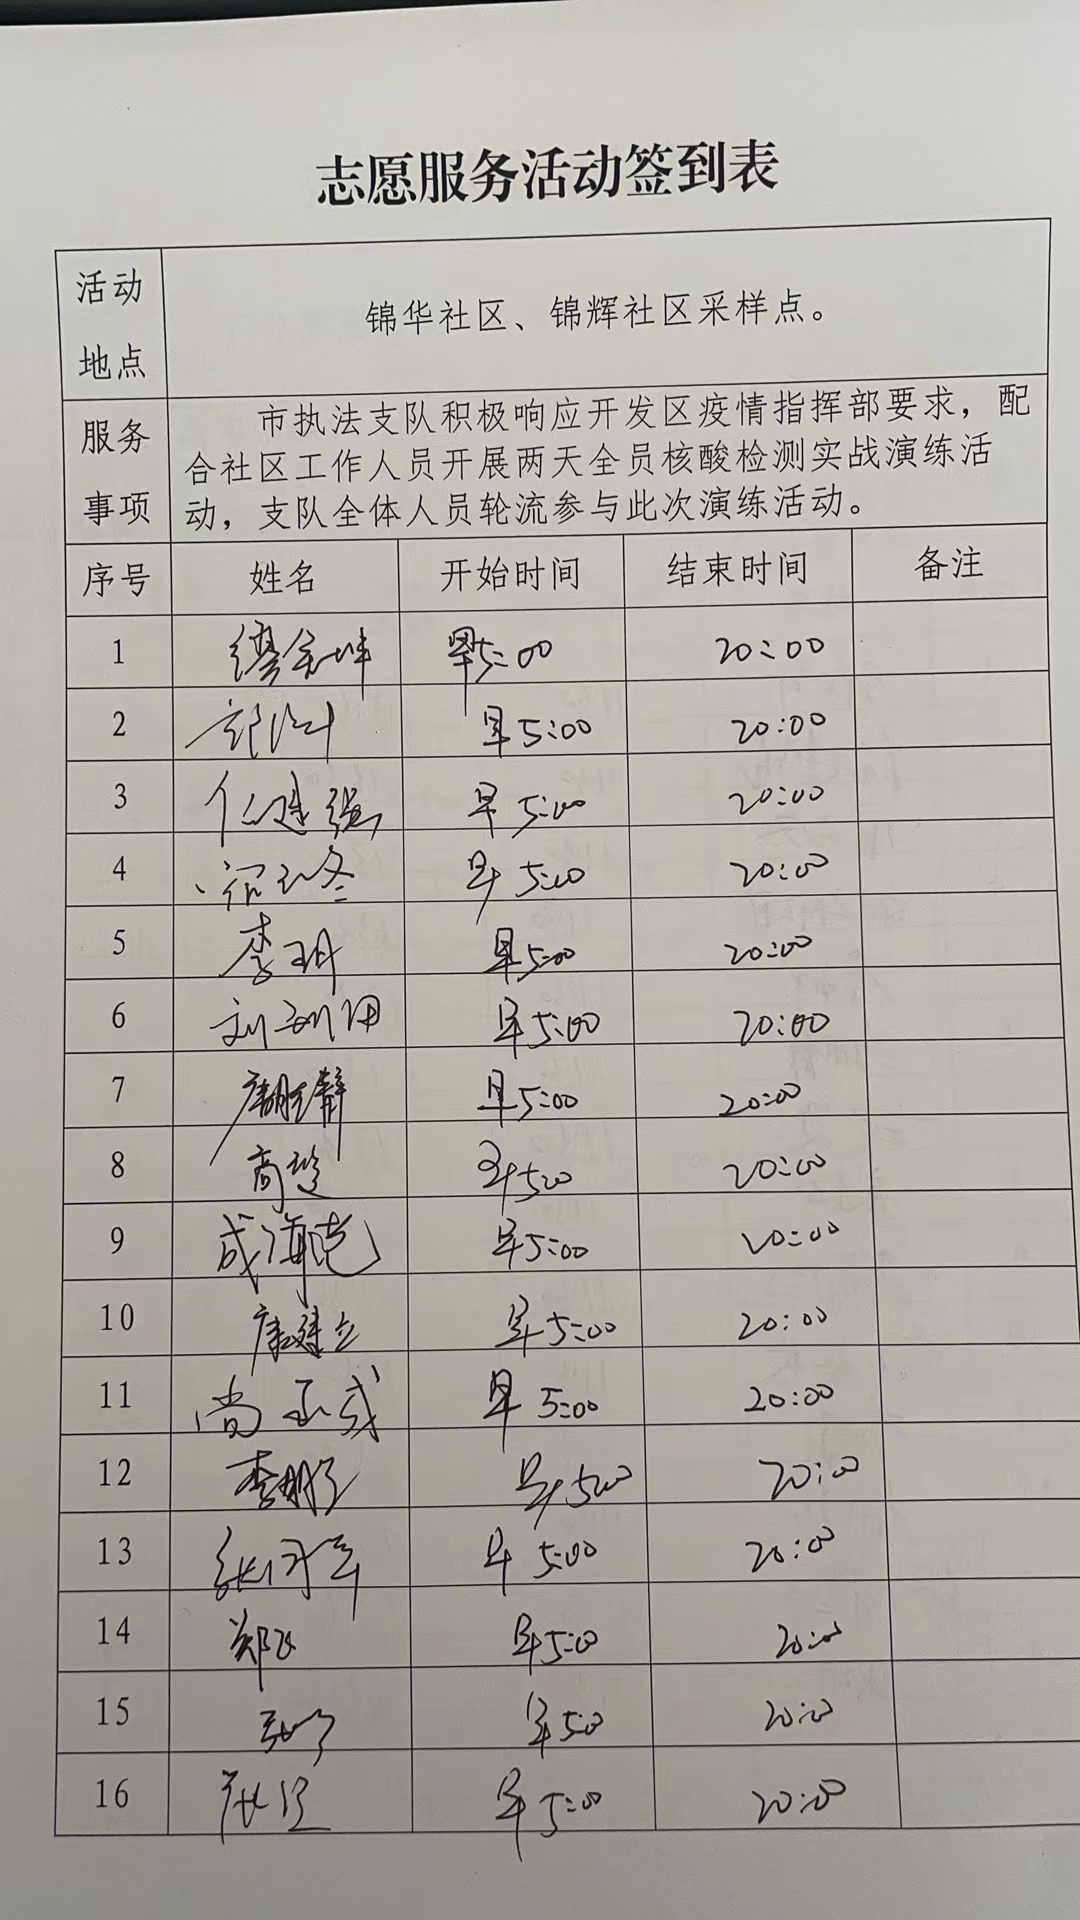 志愿服务活动签到表
活动地点 锦华社区、锦辉社区采样点。
服务事项 市执法支队积极响应开发区疫情指挥部要求，配
合社区工作人员开展两天全员核酸检测实战演练活
动，支队全体人员轮流参与此次演练活动。
序号 姓名 开始时间 结束时间 备注
1 早5:00 20:00
2 早5:00 20:00
3 早5:00 20:00
4 早5:00 20:00
5 李玥 早5:00 20:00
6 早5:00 20:00
7 早5:00 20:00
8 高楚 早5:00 20:00
9 早5:00 20:00
10 康建立 早5:00 20:00
11 早5:00 20:00
12 早5:00 20:00
13 早5:00 20:00
14 郑飞 早5:00 20:00
15 早5:00 20:00
16 早5:00 20:00